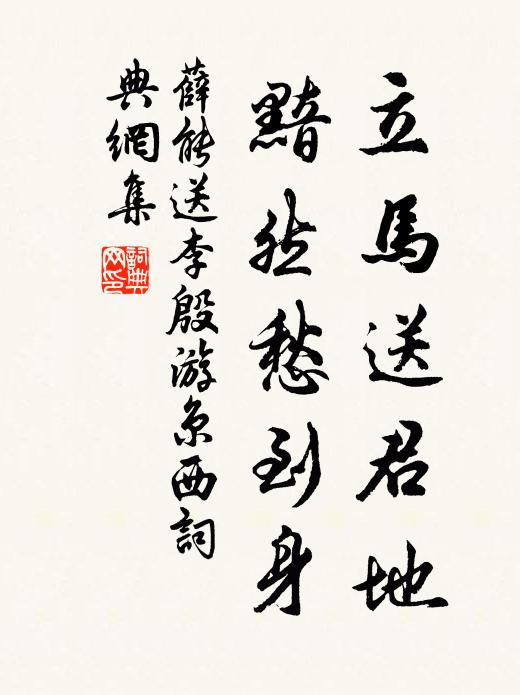 立馬送君地
黯然愁到身
薛能送李殷游京西詞
典網集
詞典
网印